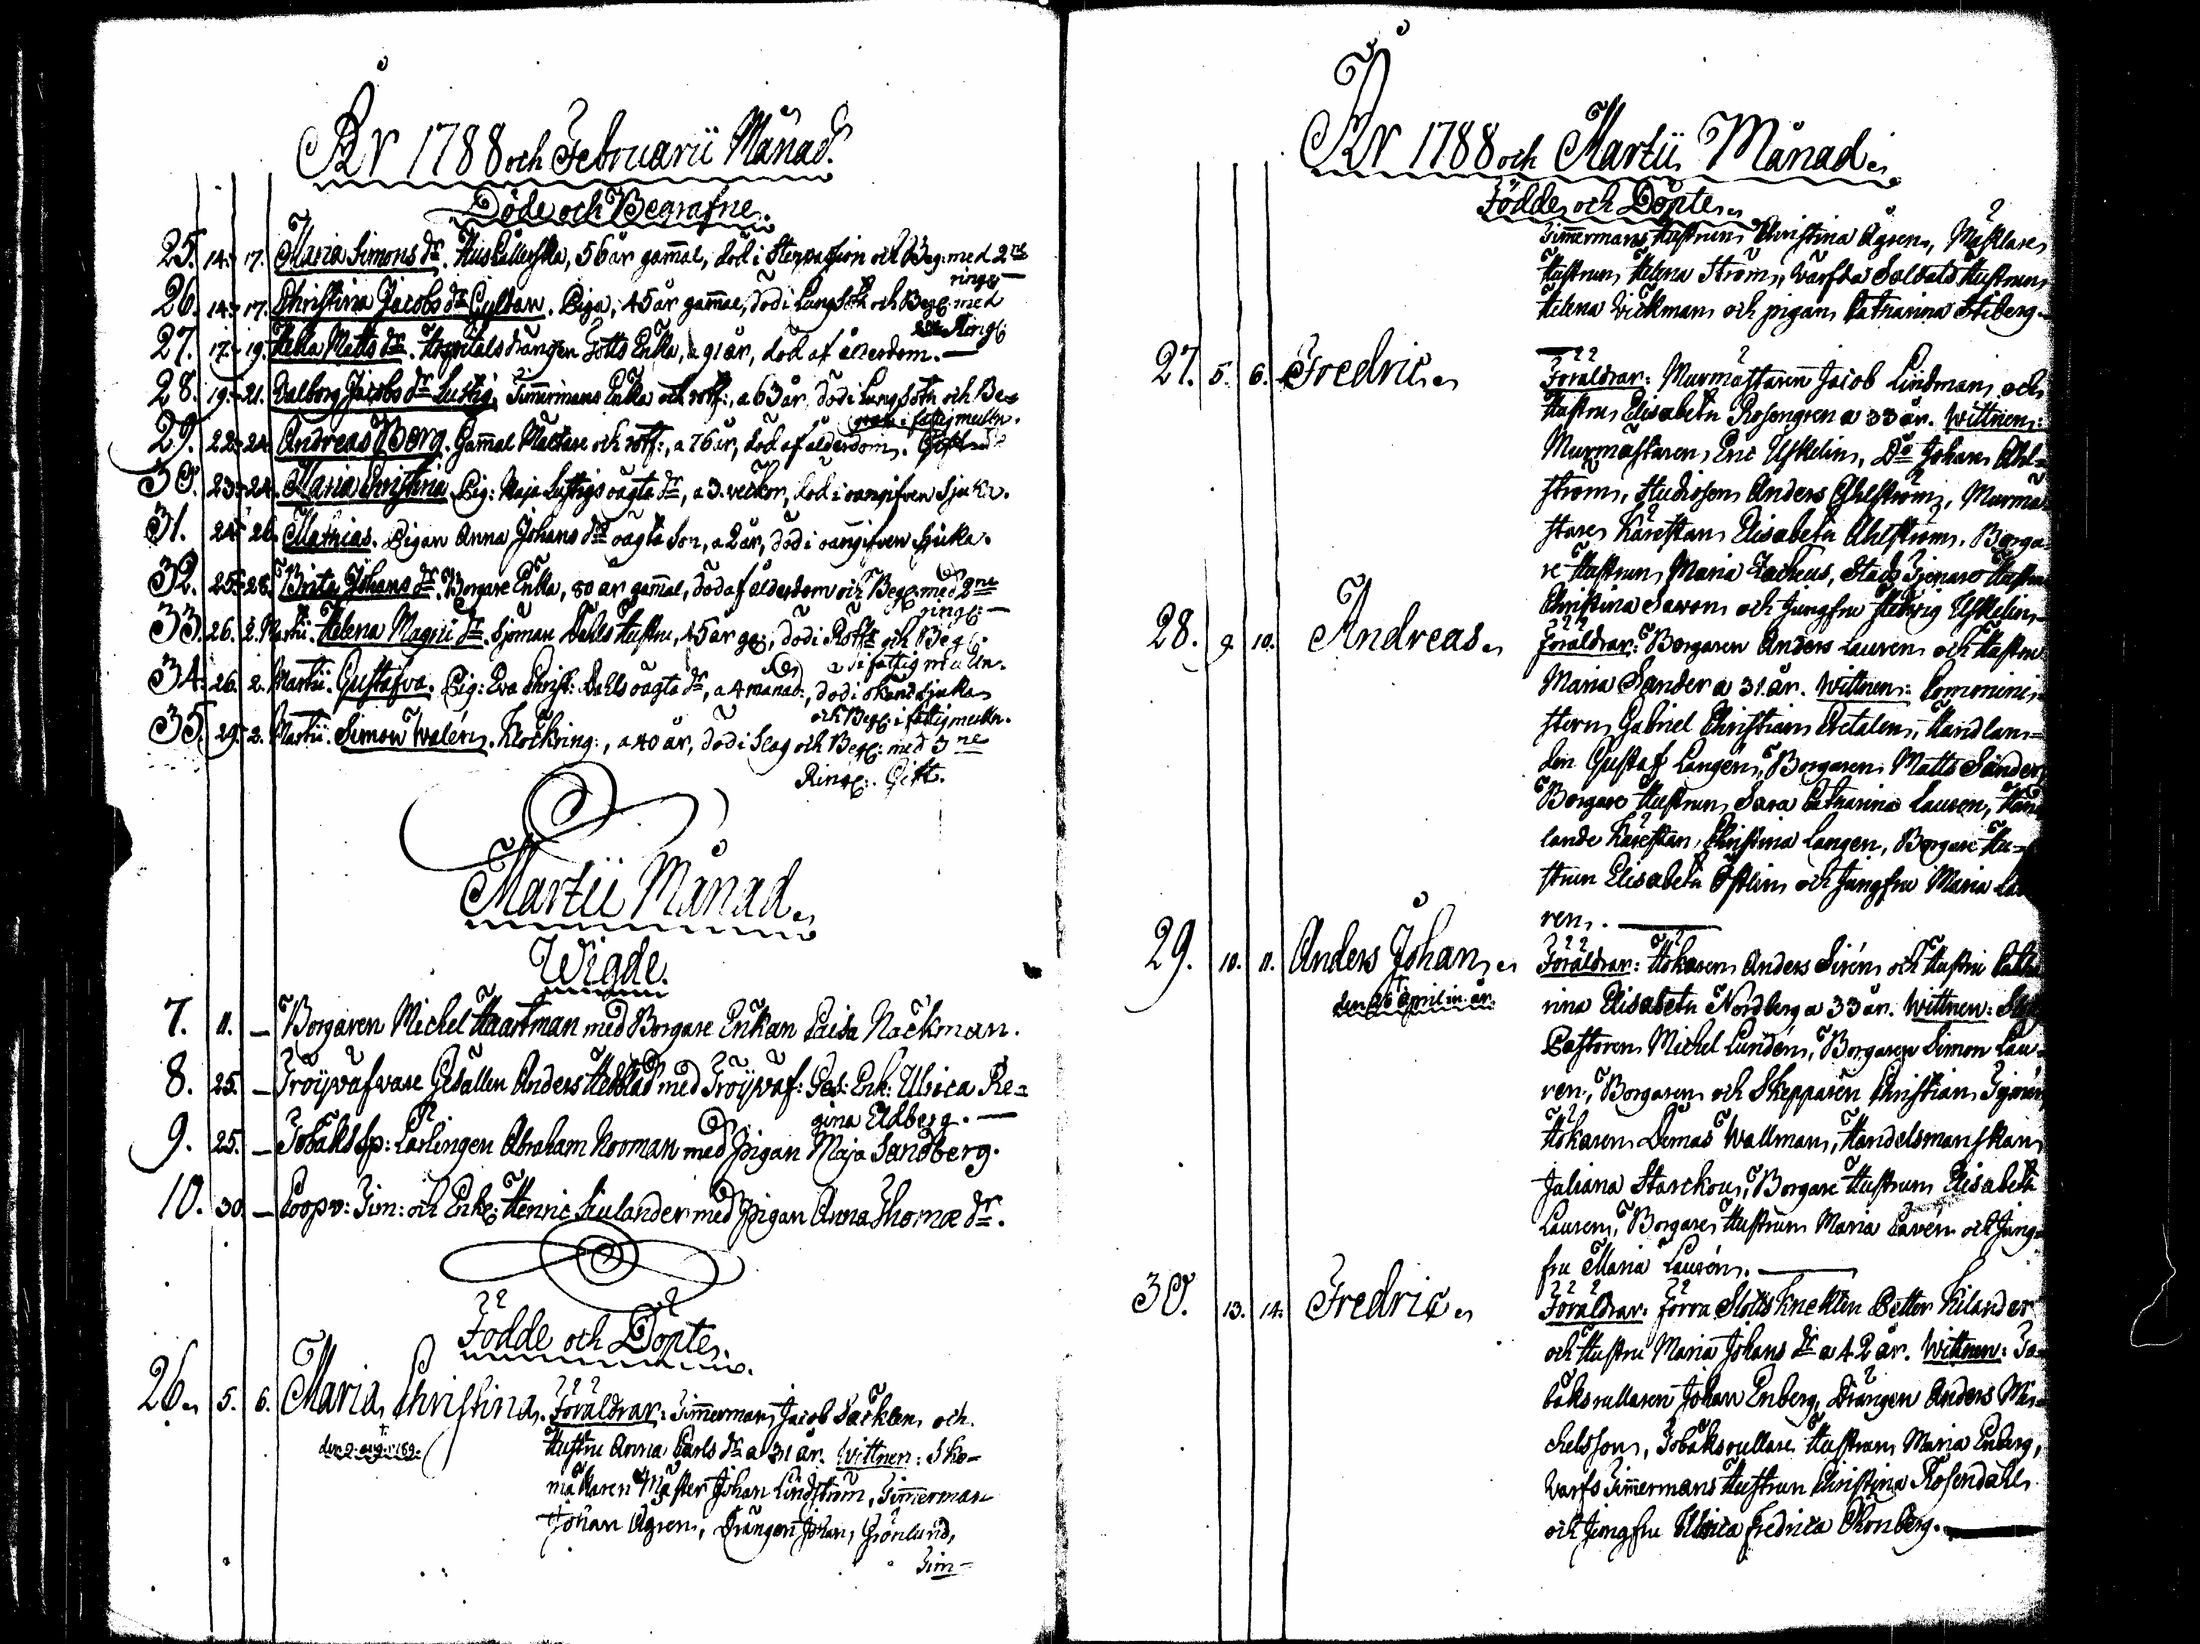 År 1788 och Februarii Månad.
Döde och Begrafne.
25. 14. 17. Maria Simons dr. Hushållerska, 56 år gammal, död i och Beg: med 2ne
ring:
26. 14. 17. Christina Jacobs dr Cyldan. Piga, 45 år gammal, död i Lungsot och Begr: med
Ring:
27. 17. 19. Matts dr. Hospitals drängen Enka, a 91 år, död af ålderdom.
28. 19. 21. Valborg Jacobs dr Lustig. Timmermans Enka och rotf:, a 63 år, död i Lungsot och Be-
i fattigmulln.
29. 22. 24. Andreas Berg. Gammal Mästare och rotf:, a 76 år, död af ålderdom.
30. 23. 24. Maria Christina Pig: Maja Lustigs oägta dr, a 3. veckor, död i oangifven Sjuka.
31. 24. 26. Mathias. Pigan Anna Johans dr oägta Son, a 2 år, död i oangifven Sjuka.
32. 25. 28. Brita Johans dr. Borgare Enka, 80 år gammal, död af ålderdom och Begr: med 2ne
ring:
33. 26. 2. Martii. Helena Magni dr. Sjöman Dahls Hustru, 45 år g:, död i Rötf: och Beg:
i fattig mulln.
34. 26. 2. Martii. Gustafva. Pig: Eva Christ: Dahls oägta dr, a 4 månad:, död i okänd Sjuka
och Begr: i fattigmulln.
35. 29. 2. Martii. Simon Walén. Klockring:, a 40 år, död i Slag och Begr: med 3ne
Ring: Gift.
Martii Månad.
Wigde.
7. 11. – Borgaren Michel Haartman med Borgare Enkan Caisa Näckman.
8. 25. – Tröijväfvare Gesällen Anders Hedblad med Tröijväf: Ges: Enk: Ulrica Re-
gina Eldberg.
9. 25. – Tobaks Sp: Lärlingen Abraham Norman med Pigan Maja Sandberg.
10. 30. – Coopv: Tim: och Enkl: Henric Siulander med Pigan Anna Thomæ dr.
Födde och Döpte.
26. 5. 6. Maria Christina. Föräldrar: Timmerman Jacob Säcklen och
den 9. aug. 189.
Hustru Anna Carls dr a 31 år. Wittnen: Sko-
makaren Mäster Johan Lindström, Timmerman
Johan Ågren, Drängen Johan Grönlund,
Tim-
År 1788 och Martii Månad.
Födde och Döpte.
Timmermans Hustrun Christina Ågren, Mäklare
Hustrun Helena Ström, Värfda Soldats Hustrun
Helena Wickman och pigan Catharina Stiberg.
27. 5. 6. Fredric.
Föräldrar: Murmästaren Jacob Lindman och
Hustru Elisabeth Rosengren a 33 år. Wittnen:
Murmästaren Eric Ufkelin, Do Johan Ahl-
ström, Studiosen Anders Ahlström, Murmä-
stare Kärestan Elisabeth Ahlström, Borga-
re Hustrun Maria Zacheus, Stads Hustru
Christina Savon och Jungfru Hedvig Ufkelin.
28. 9. 10. Andreas.
Föräldrar: Borgaren Anders Lauren och Hustru
Maria Sander a 31 år. Wittnen: Comminis-
tern Gabriel Christian Cretalen, Handlan-
den Gustaf Langén, Borgaren Matts Sander,
Borgare Hustrun Sara Catharina Lauren, Hand
lande Kärestan Christina Langen, Borgare Hu-
strun Elisabeth Östlin och Jungfru Maria Lau
ren.
29. 10. 11. Anders Johan.
den 26 April in. år.
Föräldrar: Hökaren Anders Sirén och Hustru Catha
rina Elisabeth Nordberg a 33 år. Wittnen:
Pastoren Michel Lundén, Borgaren Simon Lau-
ren, Borgaren och Skepparen Christian
Hökaren Demas Wallman, Handelsmanskan
Juliana Starckou, Borgare Hustrun Elisabeth
Lauren, Borgare Hustrun Maria Lavén och Jung-
fru Maria Laurén.
30. 13. 14. Fredric.
Föräldrar: Förra Slotts Knekten Petter Kilander
och Hustru Maria Johans dr a 42 år. Wittnen: To-
baksrullaren Johan Enberg, Drängen Anders Mi-
chelsson, Tobaksrullare Hustrun Maria Enberg,
Warfs Timmermans Hustrun Christina Rosendahl
och Jungfru Ulrica Fredrica Ekonberg.